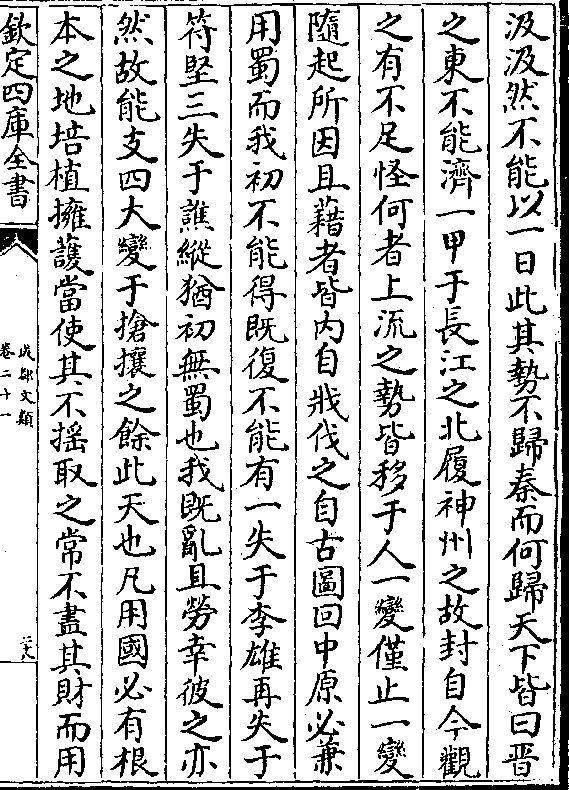 汲汲然不能以一日此其勢不歸秦而何歸天下皆曰晉
之東不能濟一甲于長江之北履神州之故封自今觀
之有不足怪何者上流之勢皆移于人一變僅止一變
隨起所因且藉者皆内自戕伐之自古圖回中原必兼
用蜀而我初不能得既復不能有一失于李雄再失于
符堅三失于譙縱猶初無蜀也我既亂且勞幸彼之亦
然故能支四大變于搶攘之餘此天也凡用國必有根
本之地培植擁護當使其不揺取之常不盡其財而用
欽定四庫全書
成都文類
卷二十一
二十八